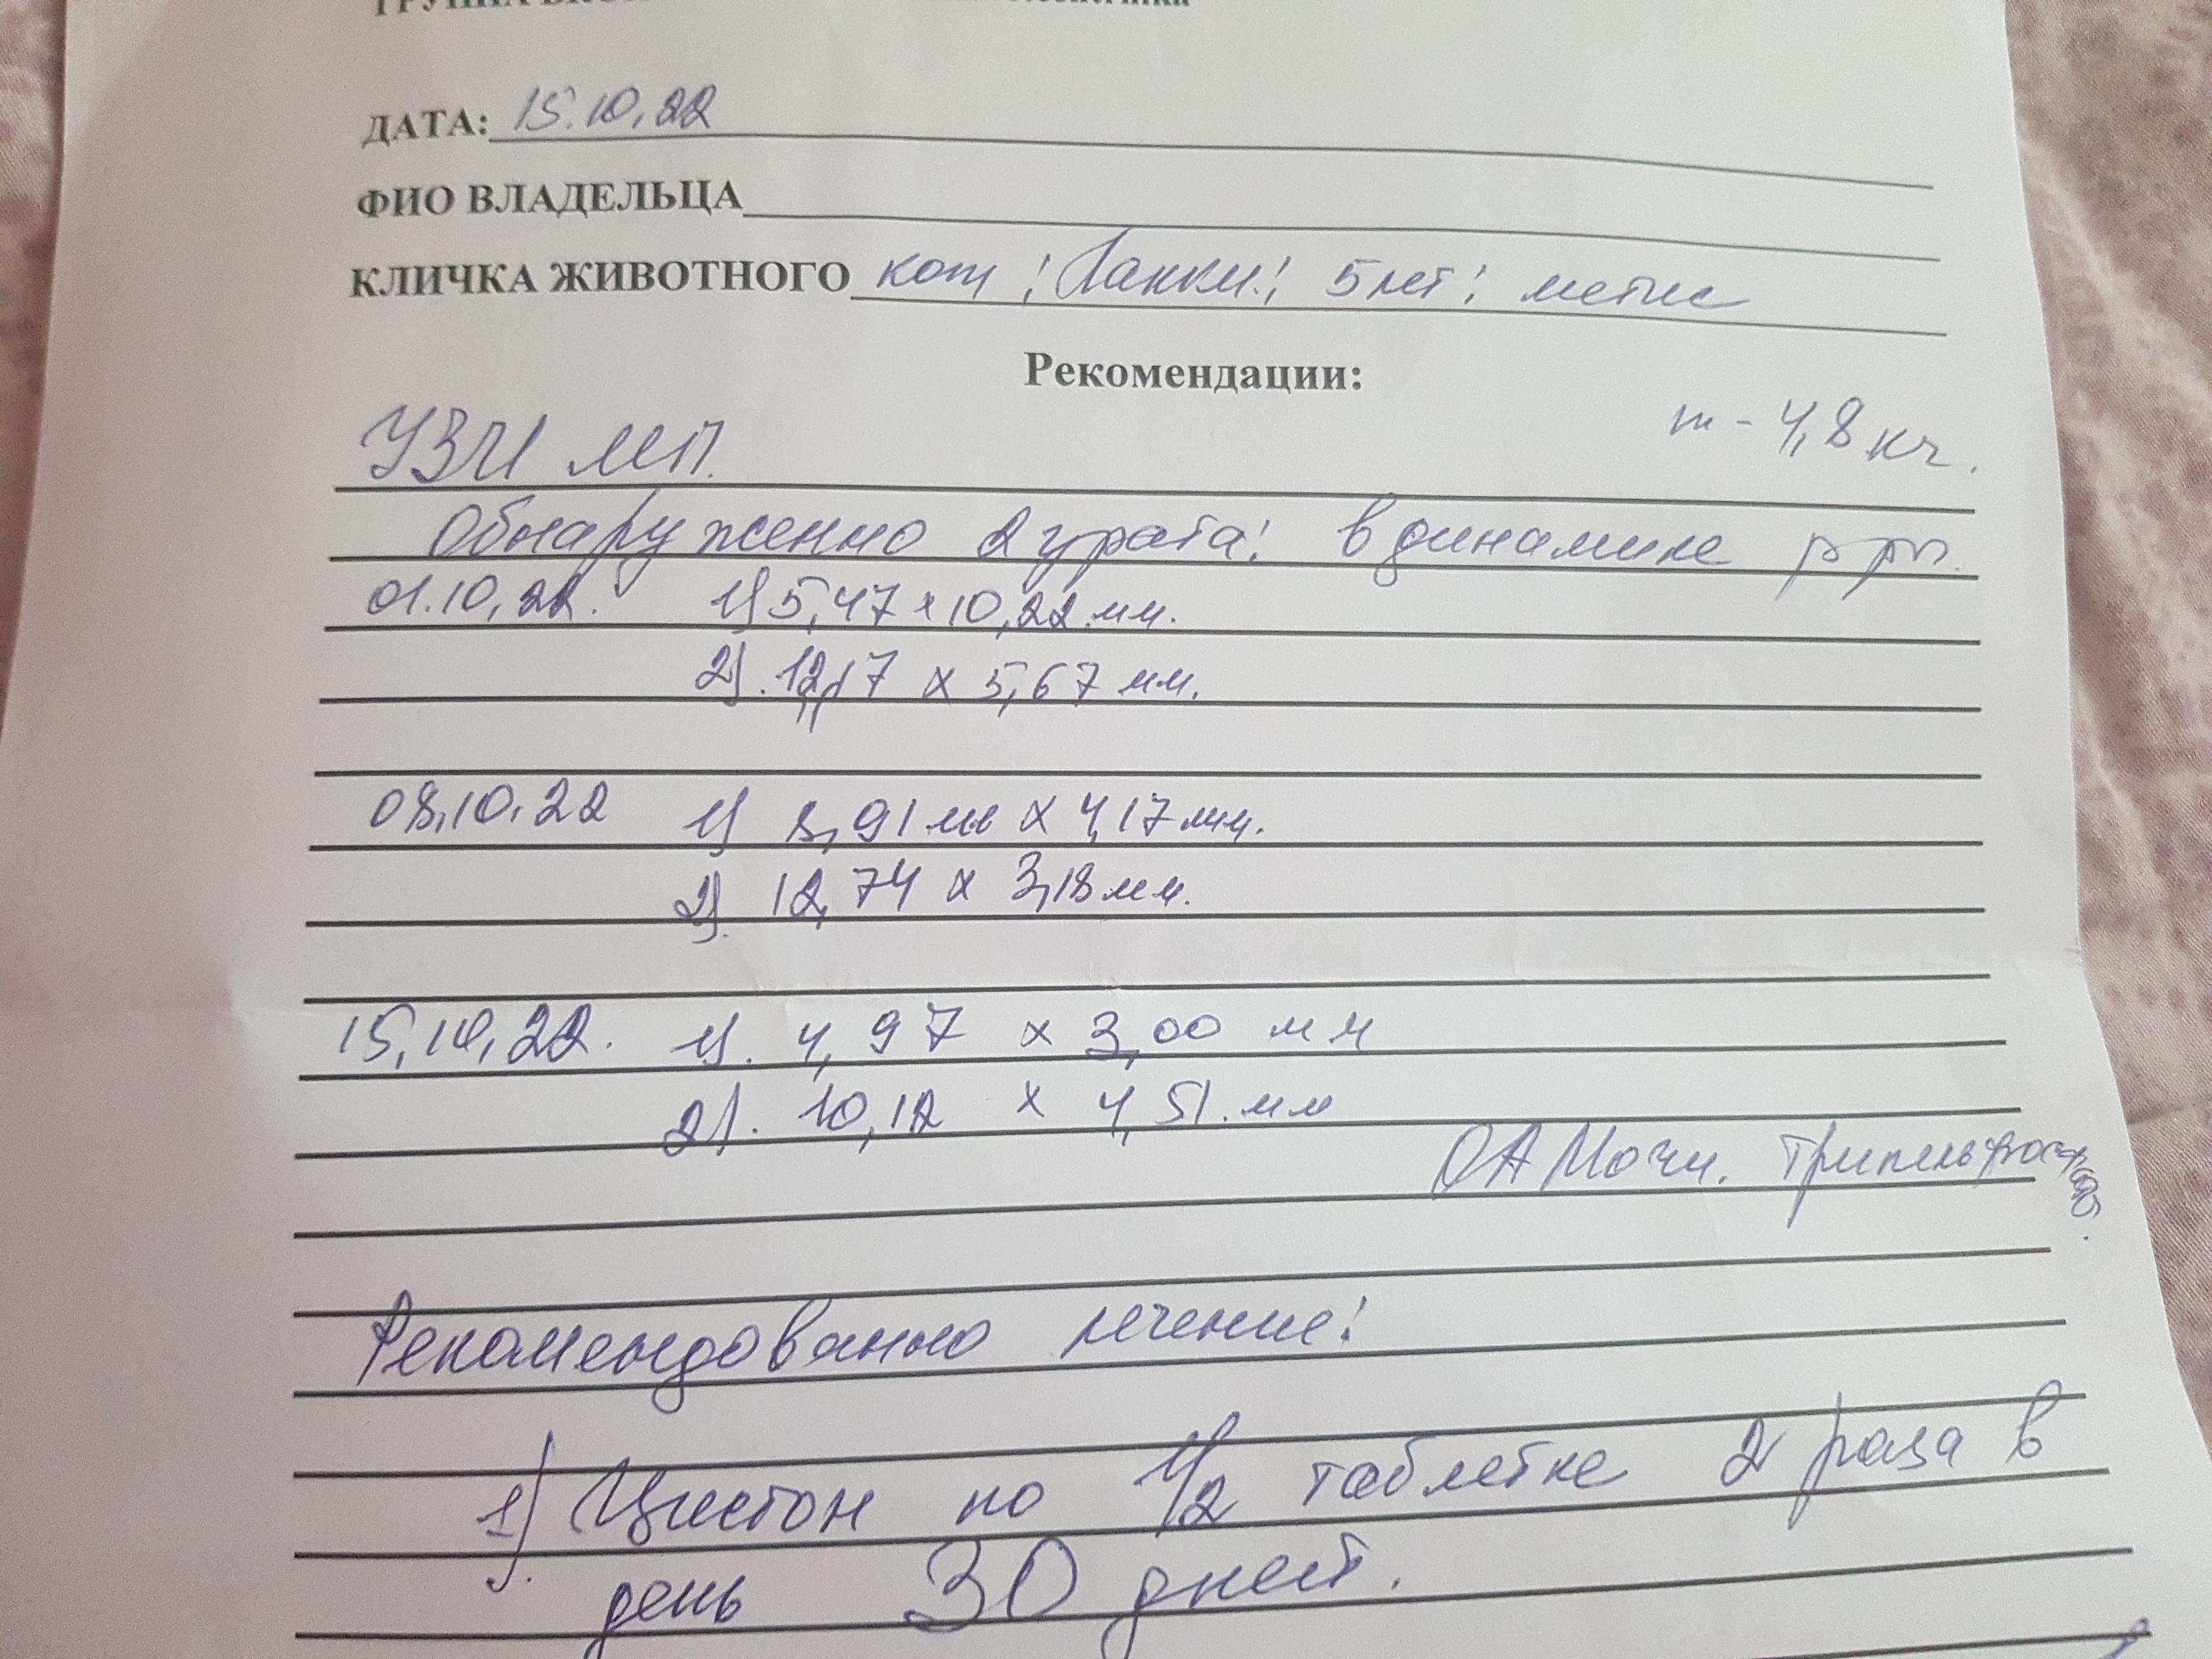 ДАТА: 15.10.22
ФИО ВЛАДЕЛЬЦА
КЛИЧКА ЖИВОТНОГО кот; Лакки; 5 лет; метис
Рекомендации:
m - 4,8 кг.
УЗИ МП.
Обнаруженно 2 урата: в динамике
01.10.22. 1) 5,47 x 10,22 мм.
2). 12,17 x 5,67 мм.
08.10.22 1) 8,91 мм x 4,17 мм.
2). 12,74 x 3,18 мм.
15.10.22. 1). 4,97 x 3,00 мм
2). 10,12 x 4,51 мм
ОА Мочи. Трипельфосфаты.
Рекомендованно лечение:
1). Цистон по 1/2 таблетке 2 раза в
день 30 дней.